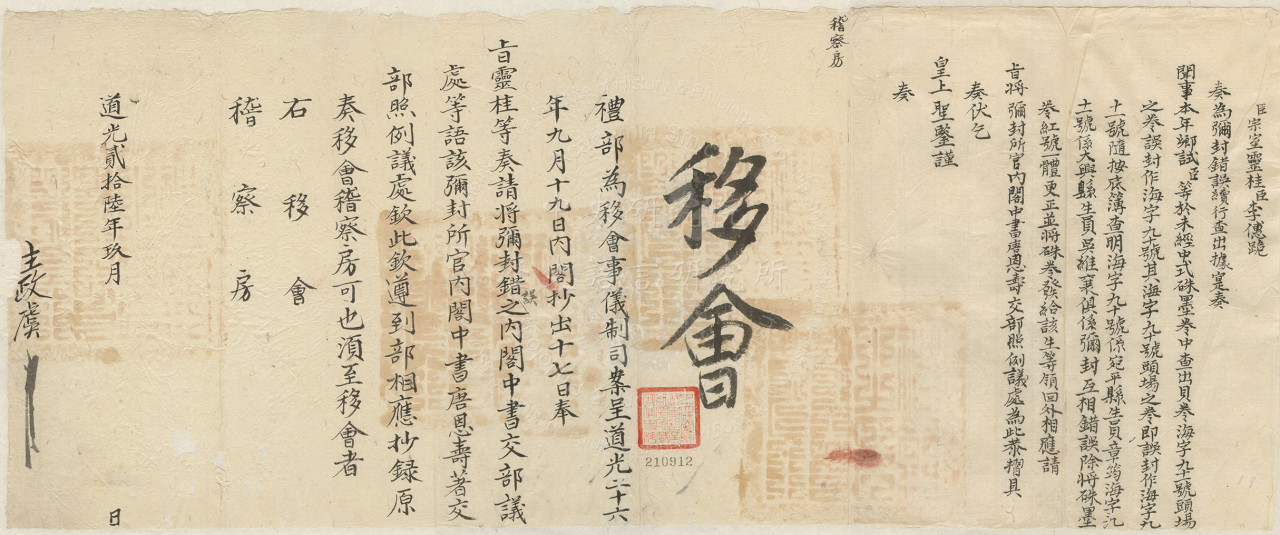 臣宗室靈桂臣李僡跪
奏為彌封錯誤續行查出據實奏
聞事本年鄉試臣等於未經中式硃墨卷中查出貝卷海字九十一號頭場
之卷誤封作海字九十號其海字九十號頭場之卷即誤封作海字九
十一號隨按底簿查明海字九十號係宛平縣生員章筠海字九
十一號係大興縣生員吳維棻俱係彌封互相錯誤除將硃墨
卷紅號一體更正並將硃卷發給該生等領回外相應請
旨將彌封所官內閣中書唐恩壽交部照例議處為此恭摺具
奏伏乞
皇上聖鑒謹
奏
稽察房
移會
210912
禮部為移會事儀制司案呈道光二十六
年九月十九日內閣抄出十七日奉
旨靈桂等奏請將彌封錯誤之內閣中書交部議
處等語該彌封所官內閣中書唐恩壽著交
部照例議處欽此欽遵到部相應抄錄原
奏移會稽察房可也須至移會者
右移會
稽察房
道光貳拾陸年玖月
日
主政虞